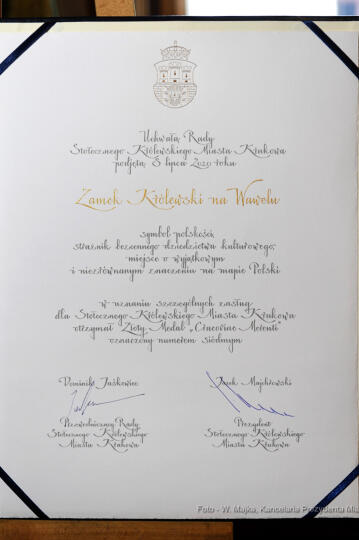 Uchwałą Rady
Stołecznego Królewskiego Miasta Krakowa
podjętą 8 lipca 2020 roku
Zamek Królewski na Wawelu
symbol polskości,
strażnik bezcennego dziedzictwa kulturowego,
miejsce o wyjątkowym
i niezrównanym znaczeniu na mapie Polski
w uznaniu szczególnych zasług
dla Stołecznego Królewskiego Miasta Krakowa
otrzymał Złoty Medal „Cracoviae Merenti”
oznaczony numerem siódmym
Dominik Jaśkowiec
Jacek Majchrowski
Przewodniczący Rady
Stołecznego Królewskiego
Miasta Krakowa
Prezydent
Stołecznego Królewskiego
Miasta Krakowa
Foto - W. Majka, Kancelaria Prezydenta Mia